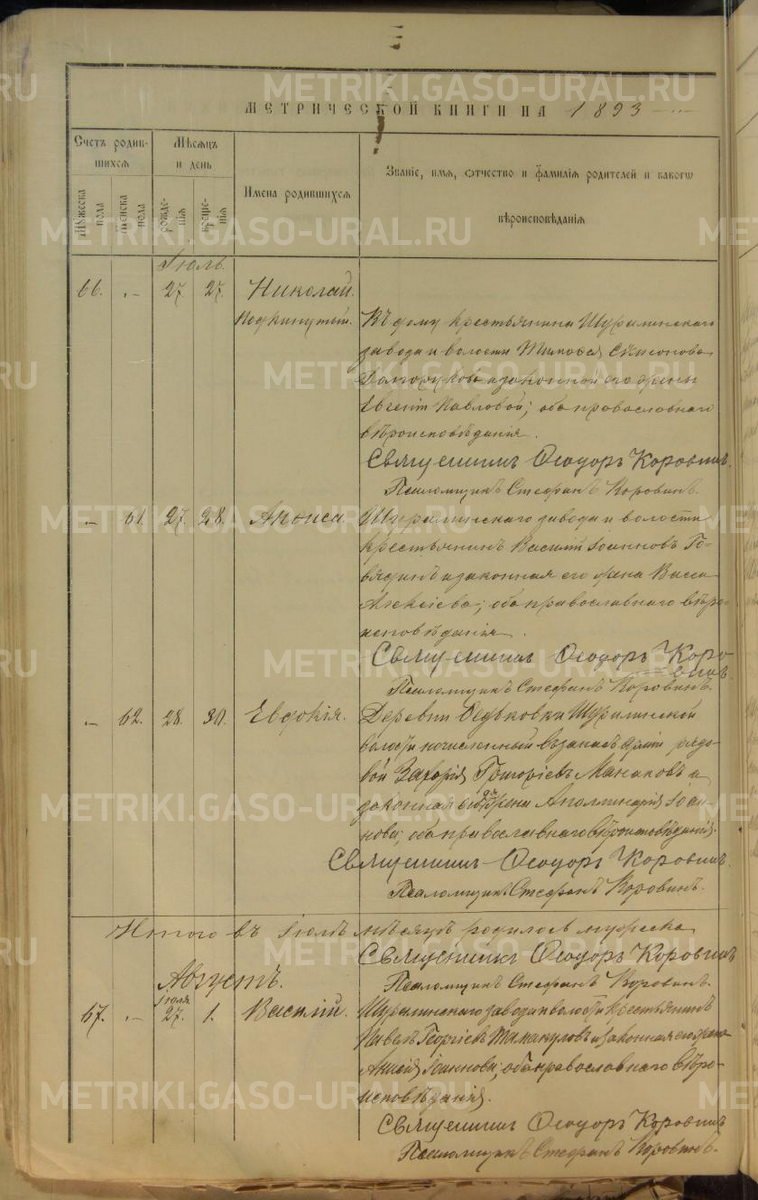 МЕТРИЧЕСКОЙ КНИГИ НА 1893
Счетъ родив-
шихся
Мѣсяцъ
и день
Мужеска
пола
Женска
пола
рожде-
нія
креще-
нія
Имена родившихся
Званіе, имя, отчество и фамилія родителей и какого
вѣроисповѣданія
Іюль.
66. „– 27. 27. Николай.
Подкинутый. Въ дому крестьянина Шуралинскаго
завода и волости Тимофея Симонова
и законной его жены
Евгеніи Павловой; оба православнаго
вѣроисповѣданія.
Священникъ Ѳеодоръ Коровинъ.
Псаломщикъ Стефанъ Коровинъ.
– 61. 27. 28. Анѳиса. Шуралинскаго завода и волости
крестьянинъ Василій Іоанновъ Го-
вядинъ и законная его жена Васса
Алексіева; оба православнаго вѣро-
исповѣданія.
Священникъ Ѳеодоръ Коро
винъ.
Псаломщикъ Стефанъ Коровинъ.
– 62. 28. 30. Евдокія. Деревни Ѳедьковки Шуралинской
волости въ запасъ арміи рядо-
вой Захарія Григоріевъ Манаковъ и
законная его жена Аполлинарія Іоан-
нова; оба православнаго вѣроисповѣданія.
Священникъ Ѳеодоръ Коровинъ.
Псаломщикъ Стефанъ Коровинъ.
Итого въ Іюлѣ мѣсяцѣ родилось мужеска
Священникъ Ѳеодоръ Коровинъ
Августъ.
Псаломщикъ Стефанъ Коровинъ.
Іюля
67. „– 27. 1. Василій. Шуралинскаго завода и волости крестьянинъ
Павелъ Георгіевъ и законная его жена
Іоаннова; оба православнаго вѣро-
исповѣданія.
Священникъ Ѳеодоръ Коровинъ
Псаломщикъ Стефанъ Коровинъ.
METRIKI.GASO-URAL.RU